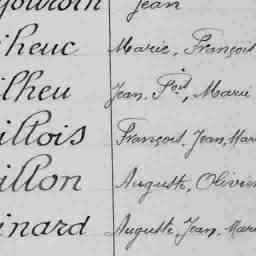 Jean
heuc Marie, François
lheu Jean, Marie
illois François, Jean, Mar
illon Auguste, Olivier
inard Auguste, Jean, Mari